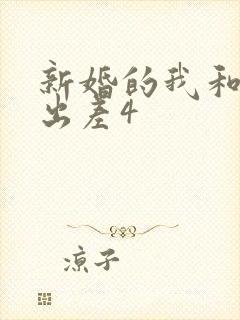 新婚的我和
出差4
凉子